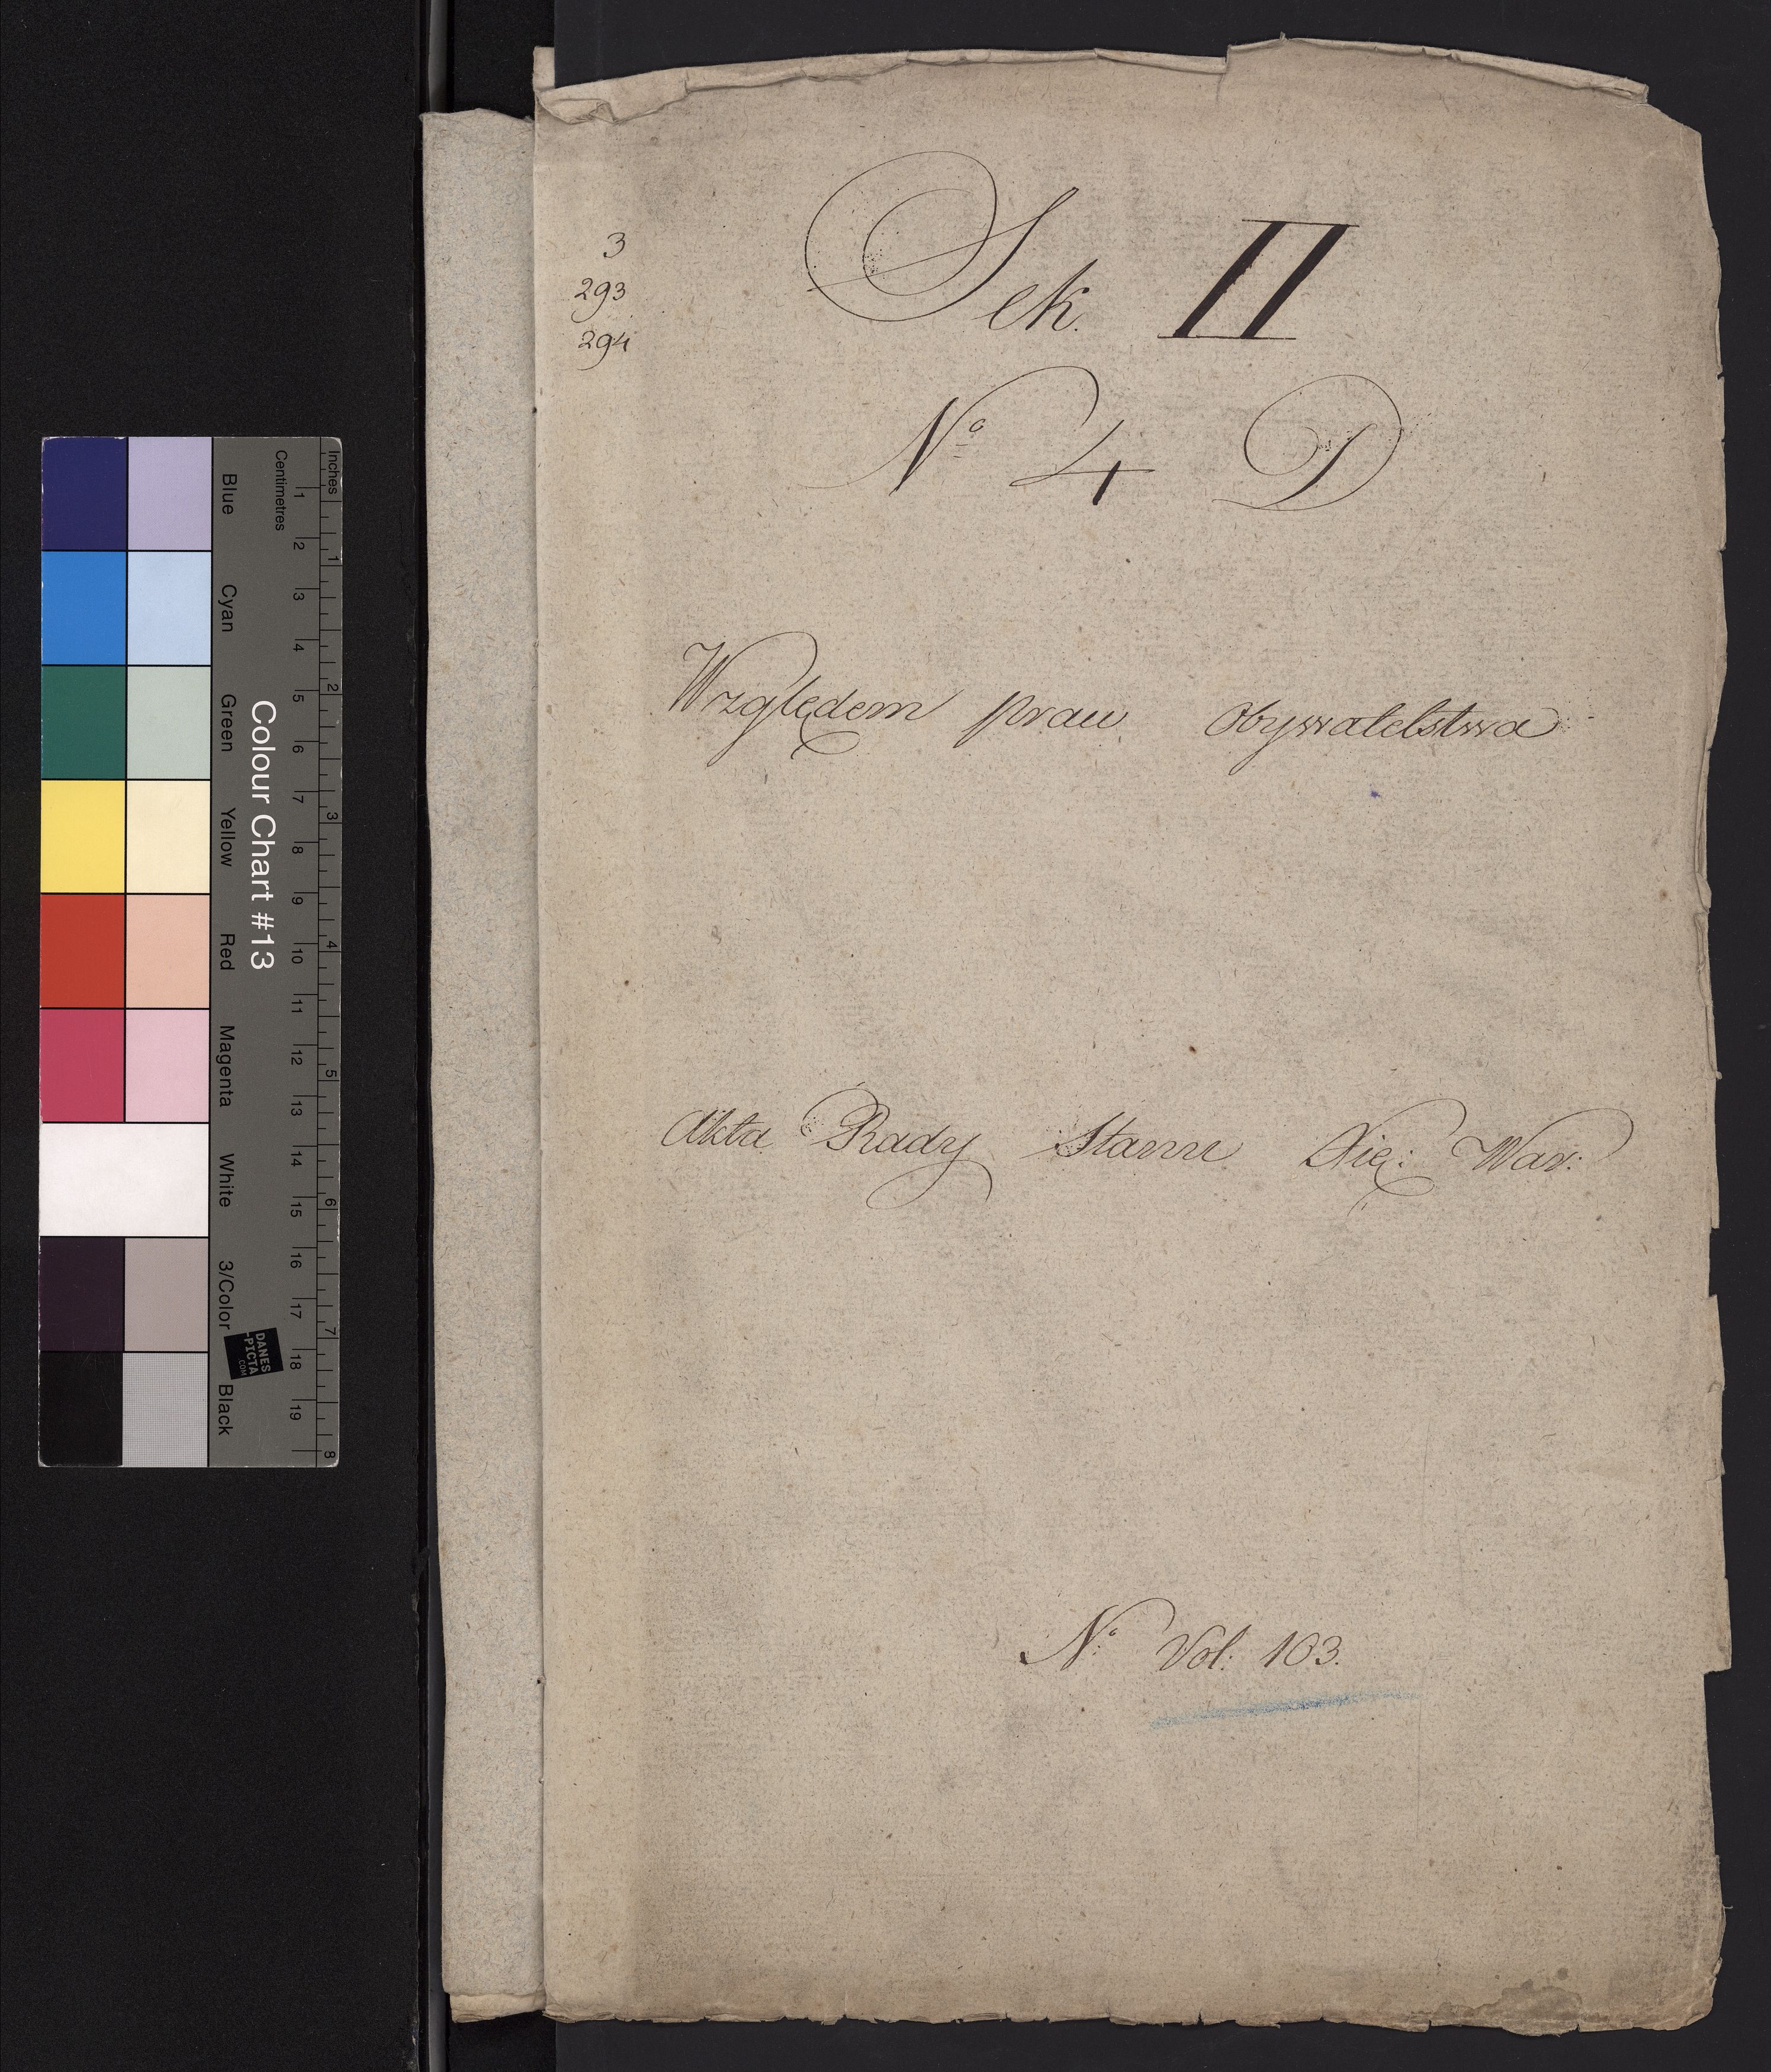 3
293
294
Sek. II
Nº 4 D
Względem praw Obywatelstwa
Akta Rady Stanu Xię: War:
Nº Vol: 103.
Inches
Centimetres
1 2 3 4 5 6 7 8 9 10 11 12 13 14 15 16 17 18 19
1 2 3 4 5 6 7 8
Colour Chart #13
Blue Cyan Green Yellow Red Magenta White 3/Color Black
DANES
-PICTA
.COM